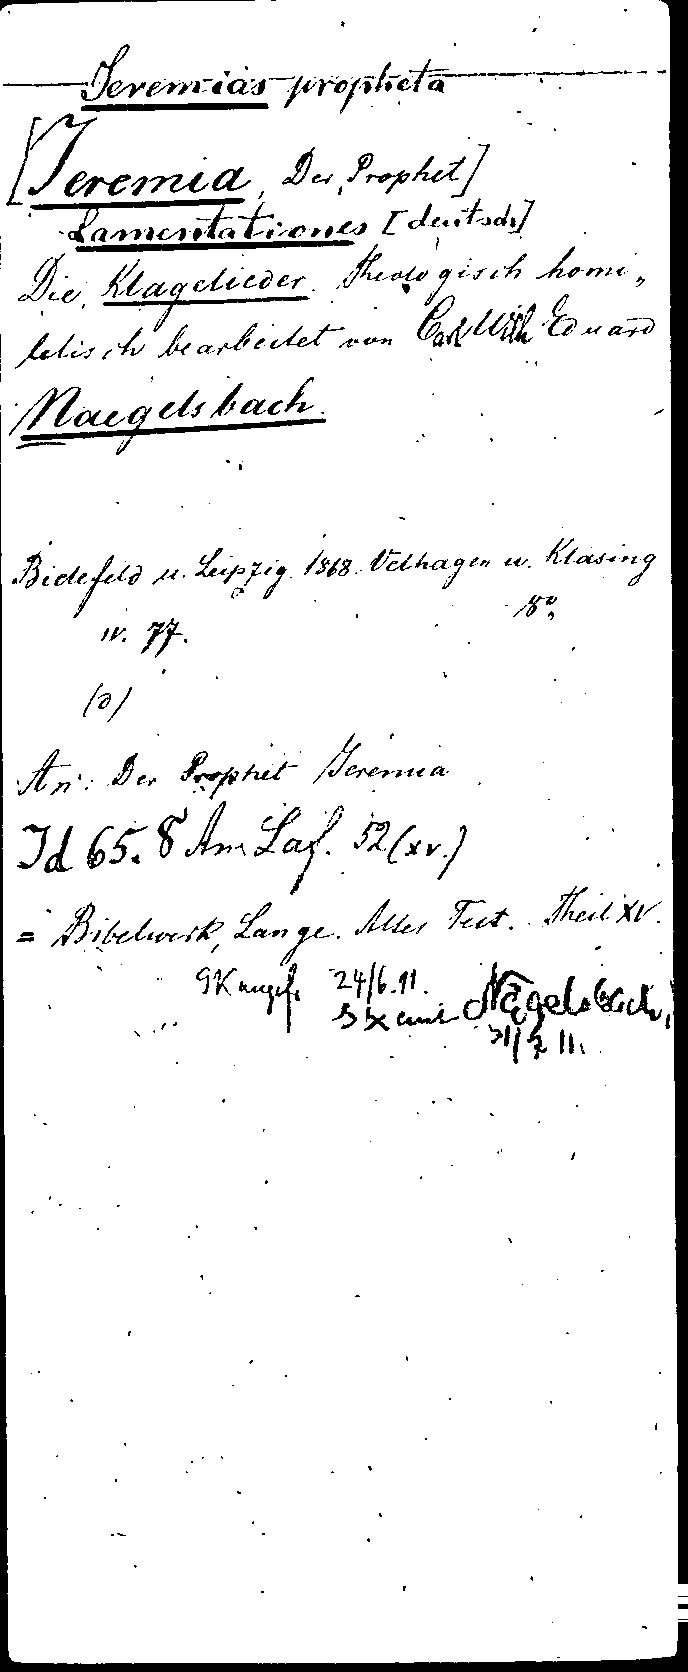 Jeremias propheta
[Jeremia, Der Prophet]
Lamentationes [deutsch]
Die Klagelieder. Theologisch homi„
letisch bearbeitet von Carl Wilh Eduard
Naegelsbach.
Bielefeld u. Leipzig 1868. Velhagen u. Klasing
8°.
IV. 77.
(d)
An: Der Prophet Jeremia
Id 65. 8 An. Laf. 52 (XV.)
= Bibelwerk, Lange. Altes Test. Theil XV.
GK 24/6.11.
Nägelsbach,
11.